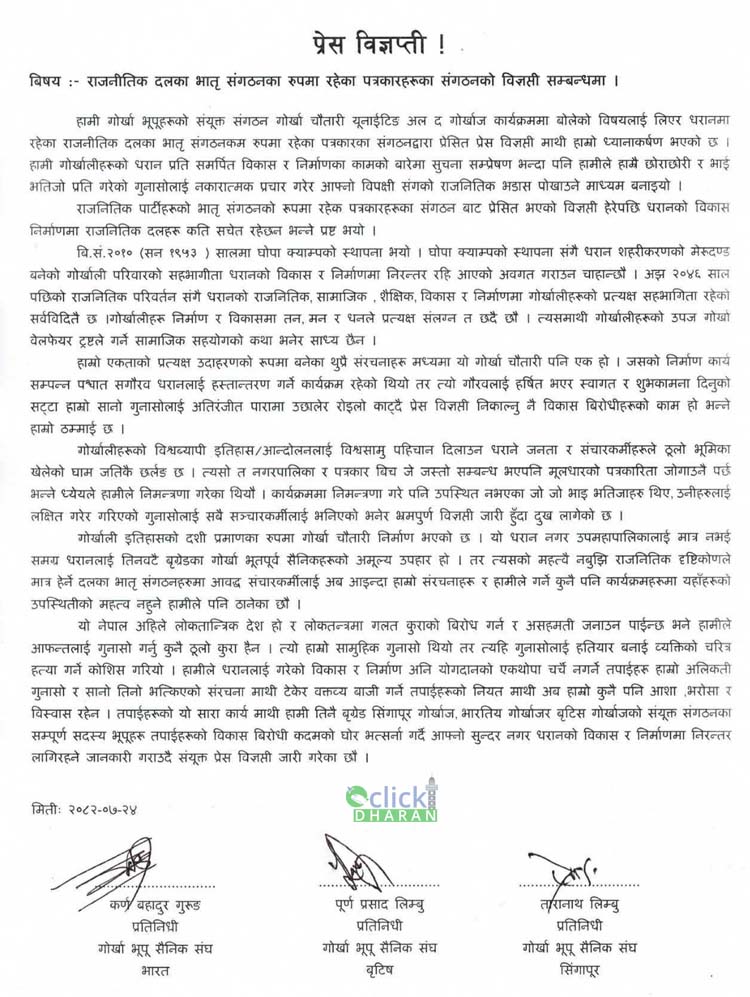 प्रेस विज्ञप्ती !
बिषय :- राजनीतिक दलका भातृ संगठनका रुपमा रहेका पत्रकारहरूका संगठनको विज्ञप्ती सम्बन्धमा ।
हामी गोर्खा भूपूहरूको संयूक्त संगठन गोर्खा चौतारी यूनाईटिङ अल द गोर्खाज कार्यक्रममा बोलेको विषयलाई लिएर धरानमा
रहेका राजनीतिक दलका भातृ संगठनकम रुपमा रहेका पत्रकारका संगठनद्वारा प्रेसित प्रेस विज्ञप्ती माथी हाम्रो ध्यानाकर्षण भएको छ ।
हामी गोर्खालीहरूको धरान प्रति समर्पित विकास र निर्माणका कामको बारेमा सुचना सम्प्रेषण भन्दा पनि हामीले हाम्रै छोराछोरी र भाई
भतिजो प्रति गरेको गुनासोलाई नकारात्मक प्रचार गरेर आफ्नो विपक्षी संगको राजनितिक भडास पोखाउने माध्यम बनाइयो ।
राजनितिक पार्टीहरूको भातृ संगठनको रूपमा रहेक पत्रकारहरूका संगठन बाट प्रेसित भएको विज्ञप्ती हेरेपछि धरानको विकास
निर्माणमा राजनितिक दलहरू कति सचेत रहेछन भन्ने प्रष्ट भयो ।
बि.सं.२०१० (सन १९५३ ) सालमा घोपा क्याम्पको स्थापना भयो । घोपा क्याम्पको स्थापना संगै धरान शहरीकरणको मेरूदण्ड
बनेको गोर्खाली परिवारको सहभागीता धरानको विकास र निर्माणमा निरन्तर रहि आएको अवगत गराउन चाहान्छौ । अझ २०४६ साल
पछिको राजनितिक परिवर्तन संगै धरानको राजनितिक, सामाजिक , शैक्षिक, विकास र निर्माणमा गोर्खालीहरूको प्रत्यक्ष सहभागिता रहेको
सर्वविदितै छ ।गोर्खालीहरू निर्माण र विकासमा तन, मन र धनले प्रत्यक्ष संलग्न त छदै छौ । त्यसमाथी गोर्खालीहरूको उपज गोर्खा
वेलफेयर ट्रष्टले गर्ने सामाजिक सहयोगको कथा भनेर साध्य छैन ।
हाम्रो एकताको प्रत्यक्ष उदाहरणको रूपमा बनेका थुप्रै संरचनाहरू मध्यमा यो गोर्खा चौतारी पनि एक हो । जसको निर्माण कार्य
सम्पन्न पश्चात सगौरव धरानलाई हस्तान्तरण गर्ने कार्यक्रम रहेको थियो तर त्यो गौरवलाई हर्षित भएर स्वागत र शुभकामना दिनुको
सट्टा हाम्रो सानो गुनासोलाई अतिरंजीत पारामा उछालेर रोइलो काट्दै प्रेस विज्ञप्ती निकाल्नु नै विकास बिरोधीहरूको काम हो भन्ने
हाम्रो ठम्माई छ ।
गोर्खालीहरूको विश्वव्यापी इतिहास/आन्दोलनलाई विश्वसामु पहिचान दिलाउन धराने जनता र संचारकर्मीहरूले ठूलो भूमिका
खेलेको घाम जतिकै छर्लङ छ । त्यसो त नगरपालिका र पत्रकार बिच जे जस्तो सम्बन्ध भएपनि मूलधारको पत्रकारिता जोगाउनै पर्छ
भन्ने ध्येयले हामीले निमन्त्रणा गरेका थियौ । कार्यक्रममा निमन्त्रणा गरे पनि उपस्थित नभएका जो जो भाइ भतिजाहरु थिए, उनीहरुलाई
लक्षित गरेर गरिएको गुनासोलाई सबै सञ्चारकर्मीलाई भनिएको भनेर भ्रमपुर्ण विज्ञप्ती जारी हुँदा दुख लागेको छ ।
गोर्खाली इतिहासको दशी प्रमाणका रुपमा गोर्खा चौतारी निर्माण भएको छ । यो धरान नगर उपमहापालिकालाई मात्र नभई
समग्र धरानलाई तिनवटै बृगेडका गोर्खा भूतपूर्व सैनिकहरुको अमूल्य उपहार हो । तर त्यसको महत्वै नबुझि राजनितिक दृष्टिकोणले
मात्र हेर्ने दलका भातृ संगठनहरुमा आवद्ध संचारकर्मीलाई अब आइन्दा हाम्रो संरचनाहरू र हामीले गर्ने कुनै पनि कार्यक्रमहरूमा यहाँहरूको
उपस्थितीको महत्व नहुने हामीले पनि ठानेका छौ ।
यो नेपाल अहिले लोकतान्त्रिक देश हो र लोकतन्त्रमा गलत कुराको बिरोध गर्न र असहमती जनाउन पाईन्छ भने हामीले
आफन्तलाई गुनासो गर्नु कुनै ठूलो कुरा हैन । त्यो हाम्रो सामुहिक गुनासो थियो तर त्यहि गुनासोलाई हतियार बनाई व्यक्तिको चरित्र
हत्या गर्ने कोशिस गरियो । हामीले धरानलाई गरेको विकास र निर्माण अनि योगदानको एकथोपा चर्चै नगर्ने तपाईहरू हाम्रो अलिकती
गुनासो र सानो तिनो भत्किएको संरचना माथी टेकेर वक्तव्य बाजी गर्ने तपाईहरूको नियत माथी अब हाम्रो कुनै पनि आशा ,भरोसा र
विस्वास रहेन । तपाईहरूको यो सारा कार्य माथी हामी तिनै बृग्रेड सिंगापूर गोर्खाज, भारतिय गोर्खाजर बृटिस गोर्खाजको संयूक्त संगठनका
सम्पूर्ण सदस्य भूपूहरू तपाईहरूको विकास बिरोधी कदमको घोर भत्सर्ना गर्दै आफ्नो सुन्दर नगर धरानको विकास र निर्माणमा निरन्तर
लागिरहने जानकारी गराउदै संयूक्त प्रेस विज्ञप्ती जारी गरेका छौ ।
मितीः २०८२-०७-२४
click
DHARAN
कर्ण बहादुर गुरूङ
प्रतिनिधी
गोर्खा भूपू सैनिक संघ
भारत
पूर्ण प्रसाद लिम्बु
प्रतिनिधी
गोर्खा भूपू सैनिक संघ
बृटिष
तारानाथ लिम्बु
प्रतिनिधी
गोर्खा भूपू सैनिक संघ
सिंगापूर